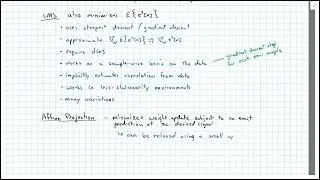 LMS also minimizes E{e²[n]}
• uses steepest descent / gradient descent
• approximate ∇ E{e²[n]} ⇒ ∇ e²[n]
• require d[n]
• works on a sample-wise basis on the data
gradient descent step
for each new sample
• implicitly estimates correlation from data
• works in less-stationarity environments
• many variations
Affine Projection - minimizes weight update subject to an exact
prediction of the desired signal
↳ can be relaxed using a small μ